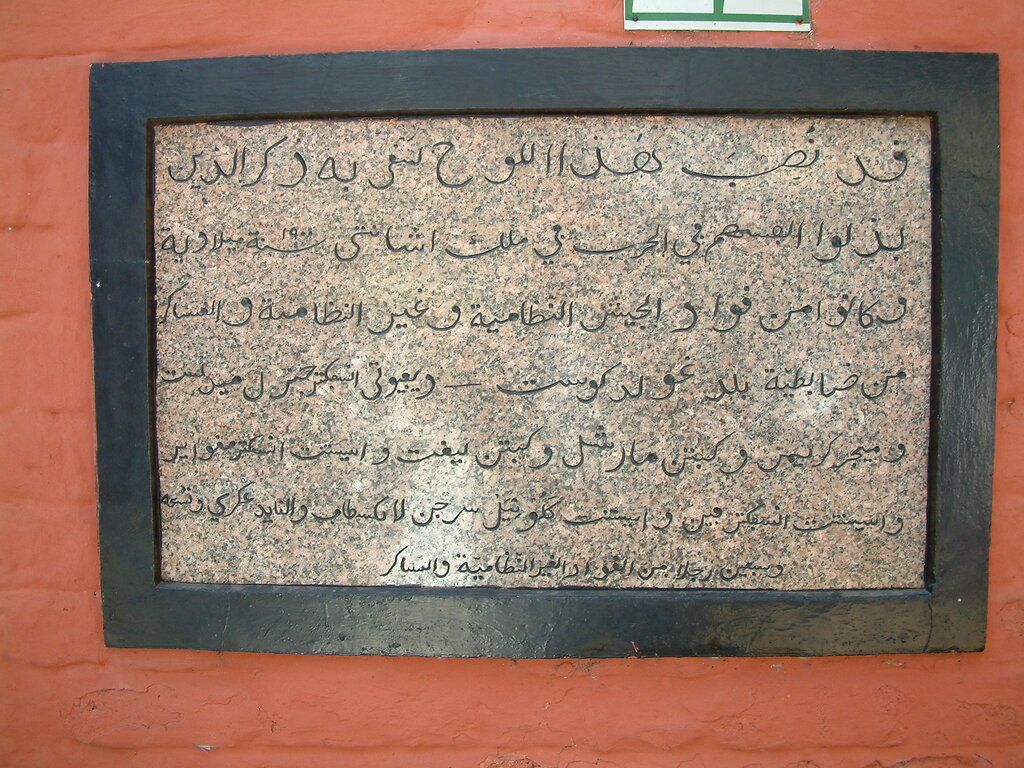 قد نصب هذا اللوح لتبقى به ذكر الذين
بذلوا انفسهم في الحرب في ملك اشانتى سنة ١٩٠١ ميلادية
وكانوا من قواد الجيش النظامية وغير النظامية والعساكر
من ضابطية بلد غولد كوست — ويفوتى انسفكتر جنرل ميدلمت
وميجر كرليمن وكبتن مارشل وكبتن ليغت واسيستنت انسفكتر
واسيستنت انسفكتر فين واسيستنت سرجن لانكسطاف والنايد عكري وتسعة
وسبعين رجلا من القواد الغير النظامية والعساكر